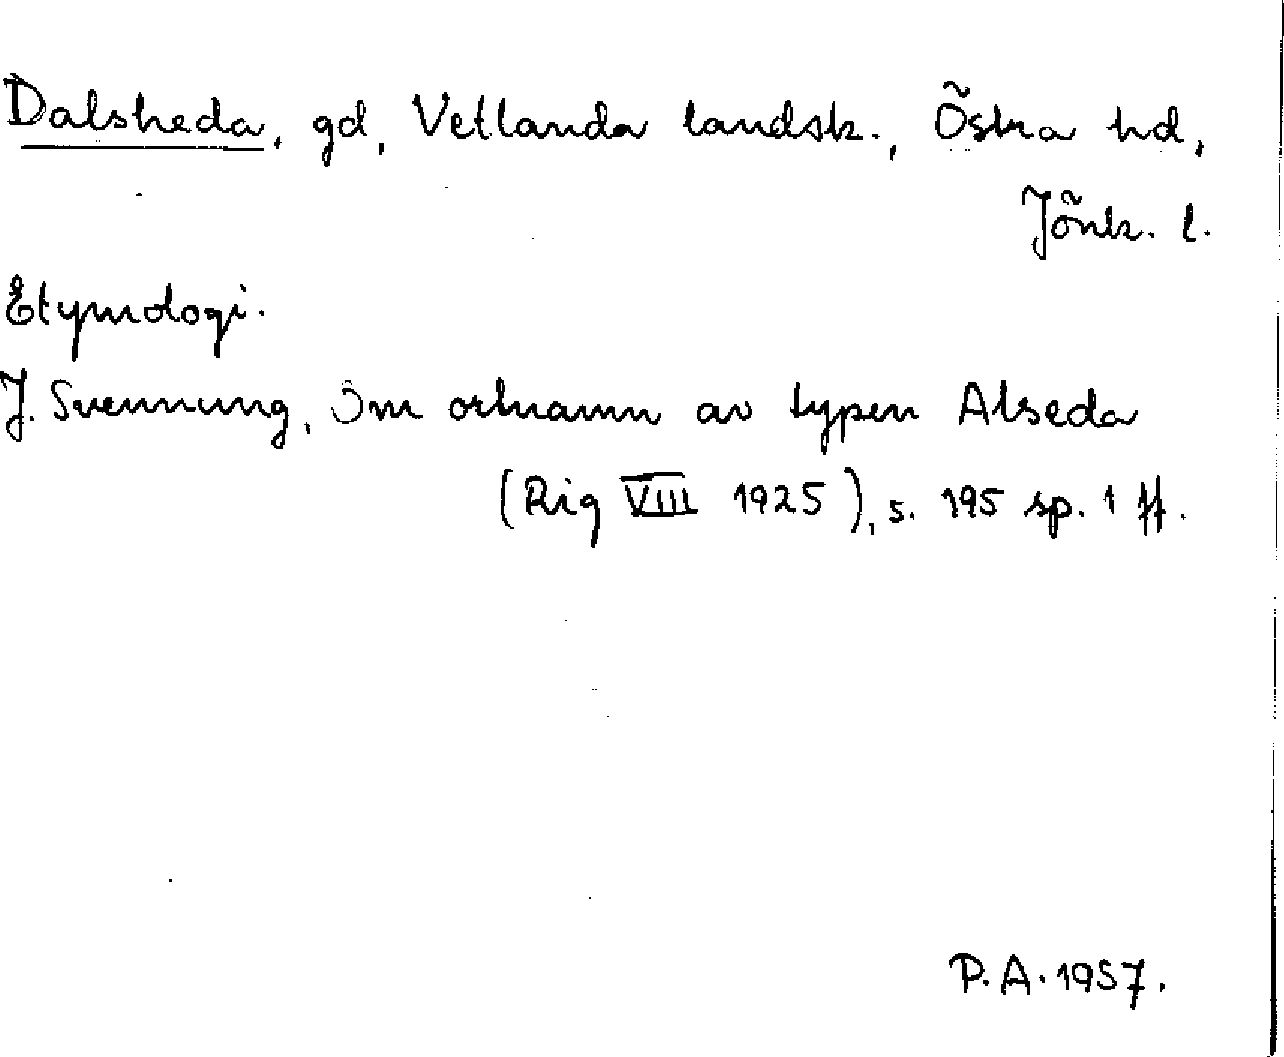 Dalsheda, gd, Vetlanda landsk., Östra hd,
Jönk. l.
Etymologi.
J. Svennung, Om ortnamn av typen Alseda
(Rig VIII 1925), s. 195 sp. 1 ff.
P.A. 1957.